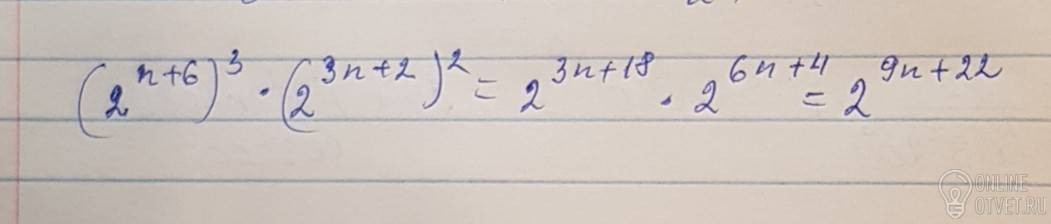 (2^{n+6})^3 · (2^{3n+2})^2 = 2^{3n+18} · 2^{6n+4} = 2^{9n+22}
ONLINE
OTVET.RU